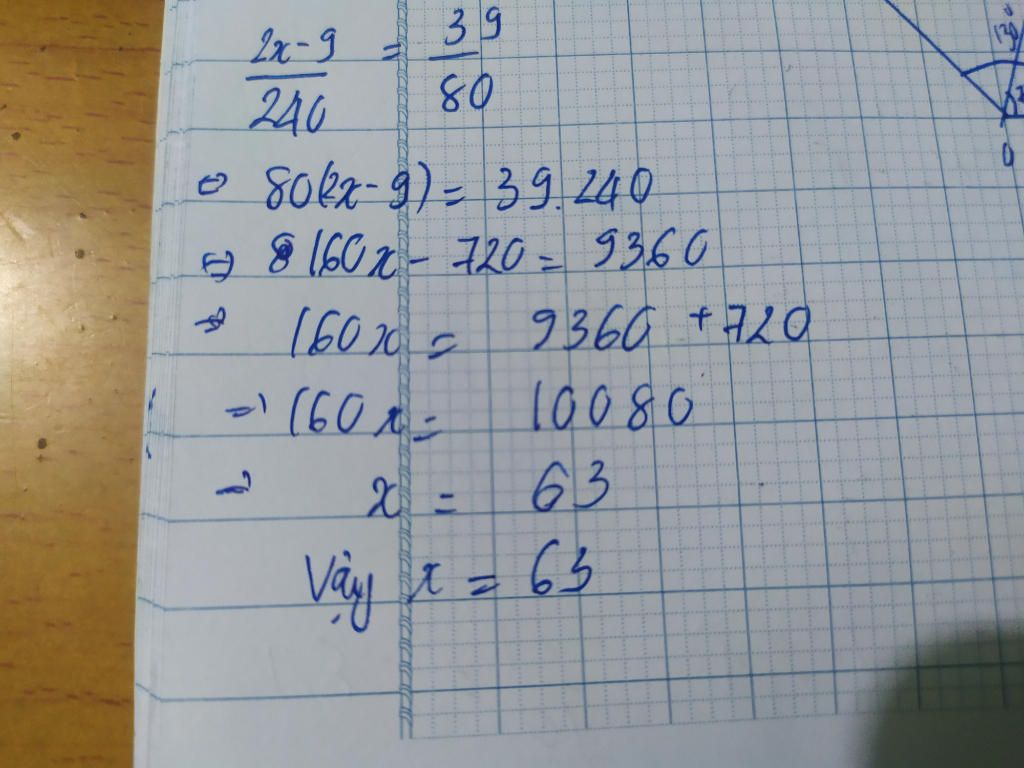 2x-9 = 39
240 80
⇔ 80(2x-9) = 39.240
⇒ 160x - 720 = 9360
⇒ 160x = 9360 + 720
⇒ 160x = 10080
⇒ x = 63
Vậy x = 63
0